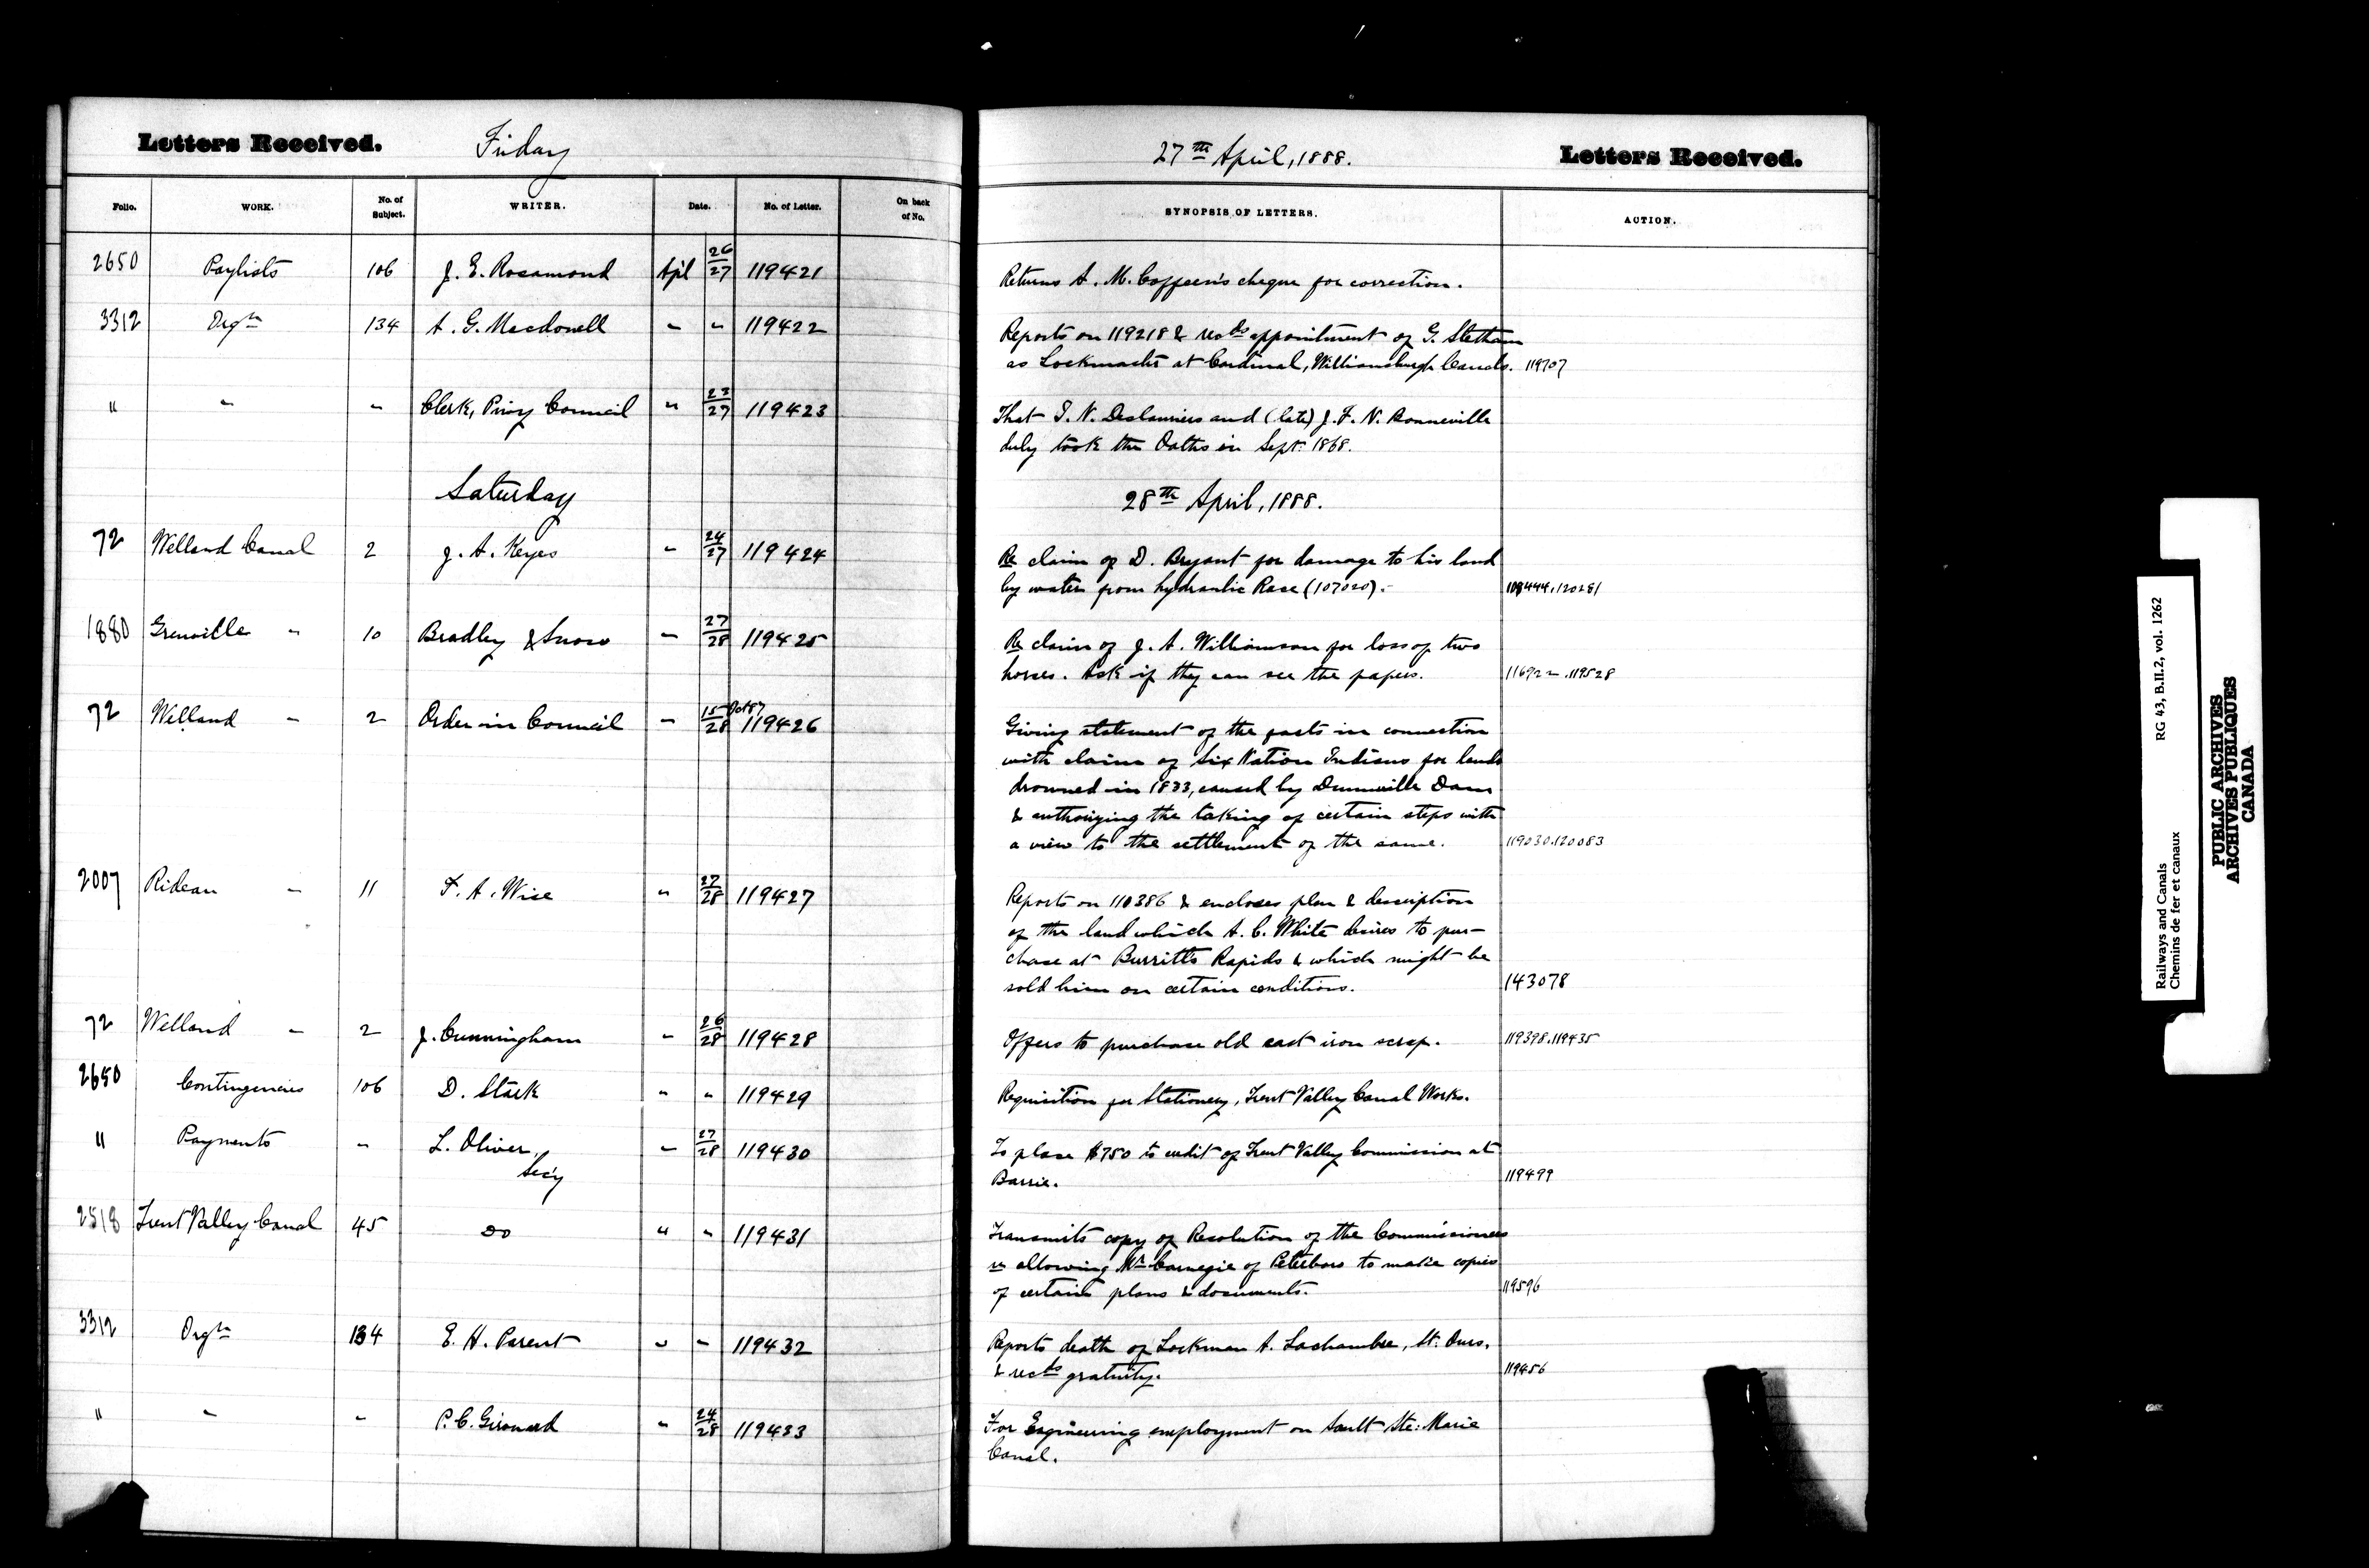 Letters Received. Friday 27th April, 1888. Letters Received.
Folio. WORK. No. of Subject. WRITER. Date. No. of Letter. On back of No. SYNOPSIS OF LETTERS. ACTION.
2650 Paylists 106 J. E. Rosamond Apl 26/27 119421 Returns A. M. Coffeen's cheque for correction.
3312 Orgn 134 A. G. Macdonell " " 119422 Reports on 119218 & recds appointment of G. Stetham
as Lockmaster at Cardinal, Williamsburgh Canals. 119707
" " " Clerk, Privy Council " 23/27 119423 That I. N. Deslauriers and (late) J. F. N. Bonneville
duly took the Oaths in Sept. 1868.
Saturday 28th April, 1888.
72 Welland Canal 2 J. A. Keyes " 24/27 119424 Re claim of D. Bryant for damage to his land
by water from hydraulic Race (107020).- 109444.120281
1880 Grenville " 10 Bradley & Snow " 27/28 119425 Re claim of J. A. Williamson for loss of two
horses. Ask if they can see the papers. 116922.119528
72 Welland " 2 Order in Council " 15 Oct 87/28 119426 Giving statement of the facts in connection
with claim of Six Nation Indians for lands
drowned in 1833, caused by Dunnville Dam
& authorizing the taking of certain steps with
a view to the settlement of the same. 119030.120083
2007 Rideau " 11 F. A. Wise " 27/28 119427 Reports on 110386 & encloses plan & description
of the land which A. C. White desires to pur-
chase at Burritts Rapids & which might be
sold him on certain conditions. 143078
72 Welland " 2 J. Cunningham " 26/28 119428 Offers to purchase old cast iron scrap. 119398.119435
2650 Contingencies 106 D. Stark " " 119429 Requisition for Stationery, Trent Valley Canal Works.
" Payments " L. Oliver, Secy " 27/28 119430 To place $750 to credit of Trent Valley Commission at
Barrie. 119499
2518 Trent Valley Canal 45 Do " " 119431 Transmits copy of Resolution of the Commissioners
re allowing Mr Carnegie of Peterboro to make copies
of certain plans & documents. 119596
3312 Orgn 134 E. H. Parent " " 119432 Reports death of Lockman A. Lachambre, St. Ours.
& recds gratuity. 119456
" " " P. C. Girouard " 24/28 119433 For Engineering employment on Sault Ste. Marie
Canal.
Railways and Canals RG 43, B.II.2, vol. 1262
Chemins de fer et canaux
PUBLIC ARCHIVES
ARCHIVES PUBLIQUES
CANADA